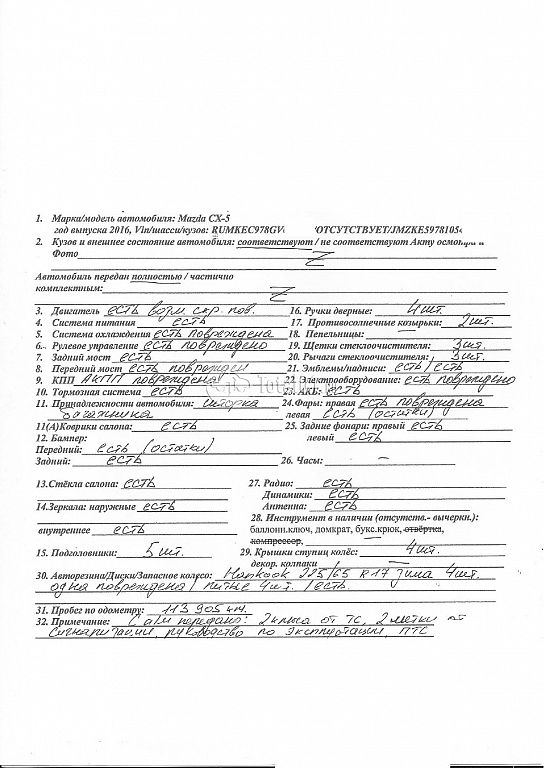 1. Марка/модель автомобиля: Mazda CX-5
год выпуска 2016, Vin/шасси/кузов: RUMKEC978GV /ОТСУТСТВУЕТ/JMZKE5978105
2. Кузов и внешнее состояние автомобиля: соответствуют / не соответствуют Акту осмотра и
Фото Z
Автомобиль передан полностью / частично
комплектным: Z
3. Двигатель есть возм скр. пов. 16. Ручки дверные: 4 шт.
4. Система питания есть 17. Противосолнечные козырьки: 2 шт.
5. Система охлаждения есть повреждена 18. Пепельницы: —
6. Рулевое управление есть повреждено 19. Щетки стеклоочистителя: 3 шт.
7. Задний мост есть 20. Рычаги стеклоочистителя: 3 шт.
8. Передний мост есть поврежден 21. Эмблемы/надписи: есть / есть
9. КПП АКПП повреждена 22. Электрооборудование: есть повреждено
10. Тормозная система есть 23. АКБ: есть
11. Принадлежности автомобиля: шторка 24. Фары: правая есть повреждена
багажника левая есть (остатки)
11(А)Коврики салона: есть 25. Задние фонари: правый есть
12. Бампер: левый есть
Передний: есть (остатки)
Задний: есть 26. Часы: —
13.Стёкла салона: есть 27. Радио: есть
Динамики: есть
14.Зеркала: наружные есть Антенна: есть
28. Инструмент в наличии (отсутств.- вычеркн.):
внутреннее есть баллонн.ключ, домкрат, букс.крюк, отвёртка,
компрессор,
15. Подголовники: 5 шт. 29. Крышки ступиц колёс: 4 шт.
декор. колпаки —
30. Авторезина/Диски/Запасное колесо: Hankook 225/65 R17 зима 4 шт.
одна повреждена / литые 4 шт. / есть.
31. Пробег по одометру: 113 905 км.
32. Примечание: С а/м передано: 2 ключа от ТС, 2 метки от
сигнализации, руководство по эксплуатации, ПТС